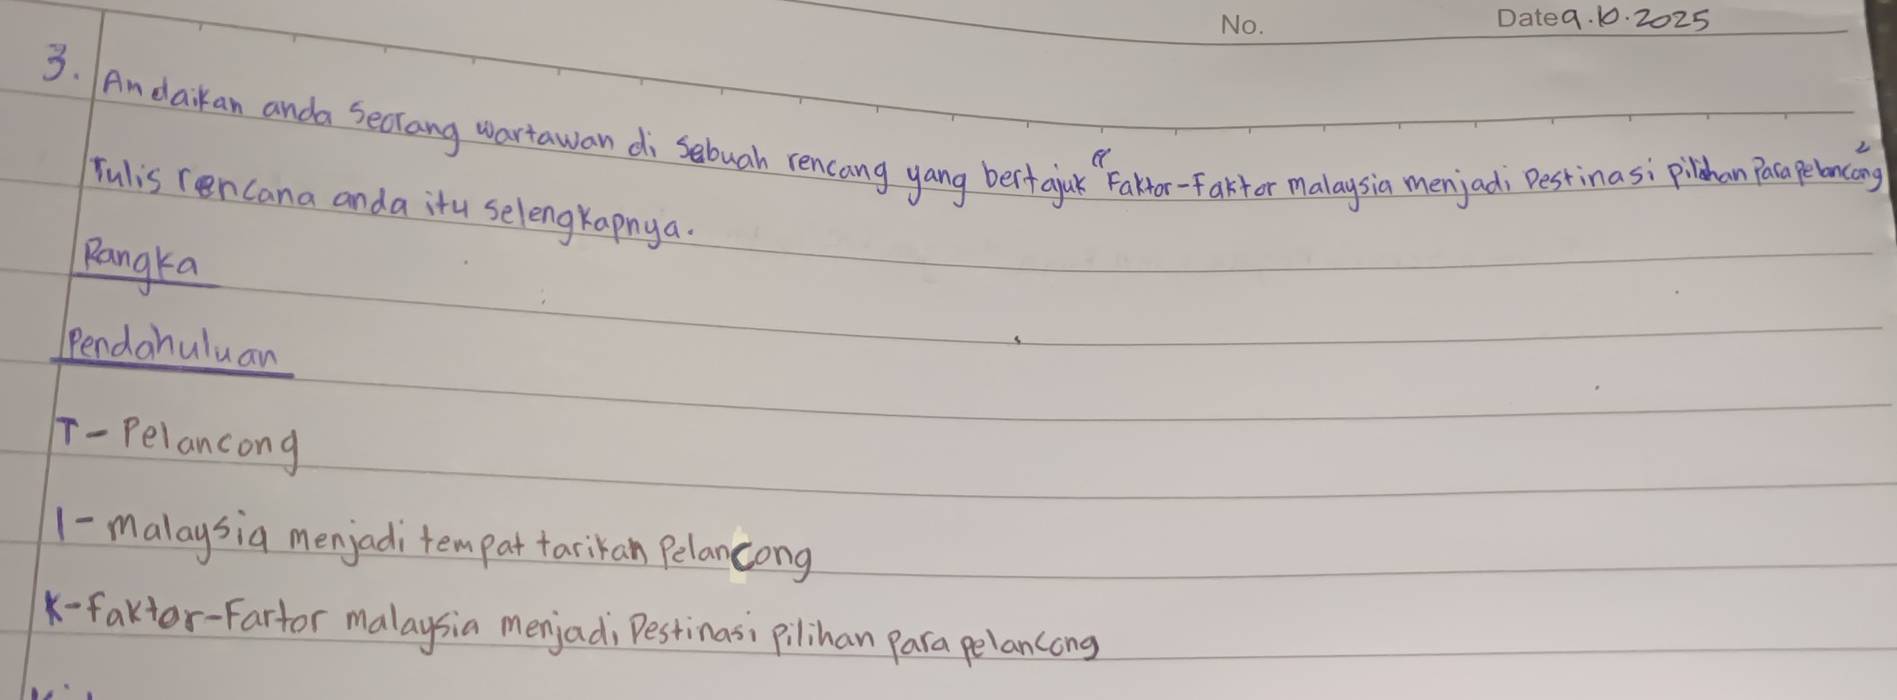 No.
Date 9.10.2025
3. Andaikan anda seorang wartawan di sebuah rencang yang bertajuk "Faktor-Faktor malaysia menjadi Destinasi pilihan Para Pelancong"
Tulis rencana anda itu selengkapnya.
Rangka
Pendahuluan
T- Pelancong
I- malaysia menjadi tempat tarikan Pelancong
K- faktor-Fartor malaysia menjadi Destinasi Pilihan Para pelancong